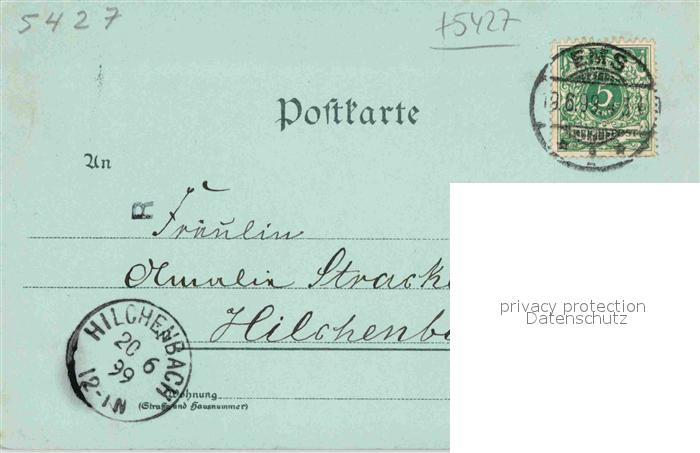 5427
+5427
EMS
5
19.6.99
Postkarte
An
R
Fräulin
Amalie Stracke
Hilchenba
HILCHENBACH
20
6
99
12-1N
Wohnung
(Straße und Hausnummer)
privacy protection
Datenschutz